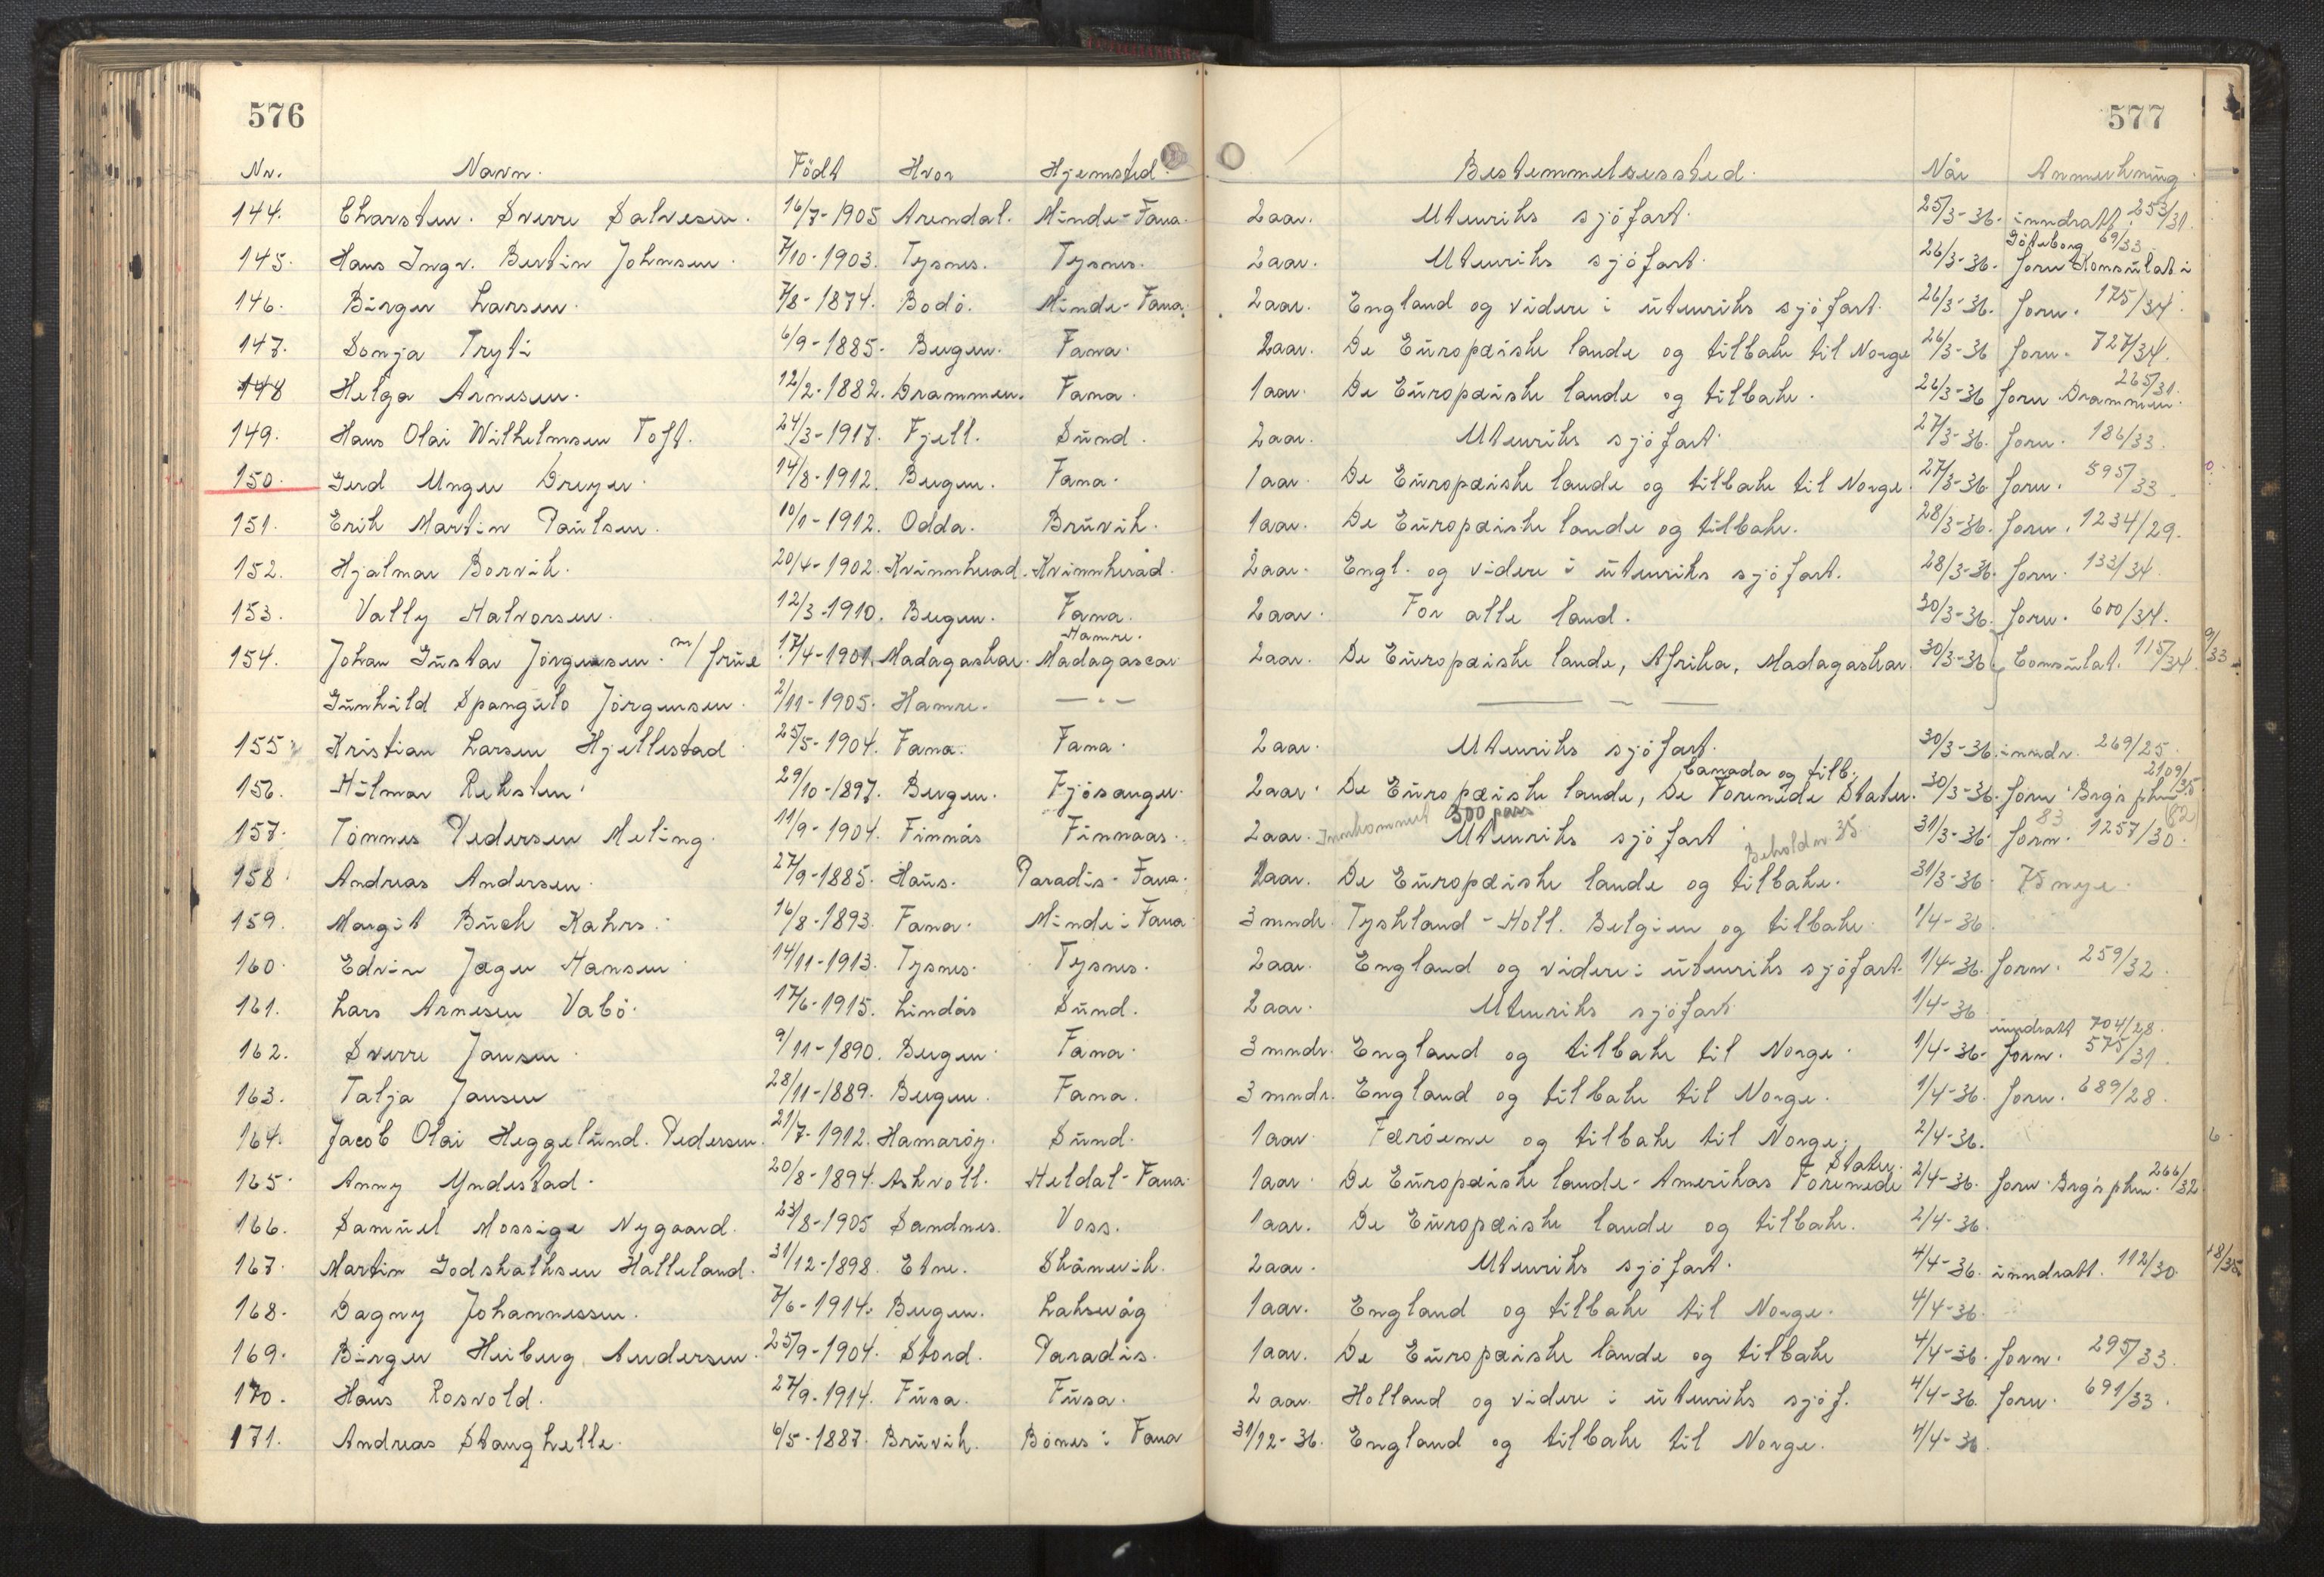 576
577
Nr. Navn. Födt Hvor Hjemsted. Bestemmelsessted. Når Anmerkning.
144. Charsten. Sverre Salvesen. 16/7-1905 Arendal. Minde-Fana. 2 aar. Utenriks sjöfart. 25/3-36. inndratt 253/31.
145. Hans Ingv. Bertin Johnsen. 7/10-1903. Tysnes. Tysnes. 2 aar. Utenriks sjöfart. 26/3-36. forn Konsulat i Göteborg 69/33
146. Birger Larsen. 7/8-1874. Bodö. Minde-Fana. 2 aar. England og videre i utenriks sjöfart. 26/3-36. forn. 175/34.
147. Sonja Tryti 6/9-1885. Bergen. Fana. 2 aar. De Europæiske lande og tilbake til Norge 26/3-36 forn. 727/34.
148 Helga Arnesen. 12/2-1882. Drammen. Fana. 1 aar. De Europæiske lande og tilbake. 26/3-36 forn Drammen. 265/31.
149. Hans Olai Wilhelmsen Toft. 24/3-1917. Fjell. Sund. 2 aar. Utenriks sjöfart. 27/3-36. forn. 186/33.
150. Gerd Unger Dreyer. 14/8-1912. Bergen. Fana. 1 aar. De Europæiske lande og tilbake til Norge. 27/3-36 forn. 595/33.
151. Erik Martin Paulsen. 10/1-1912. Odda. Bruvik. 1 aar. De Europæiske lande og tilbake. 28/3-36. forn. 1234/29.
152. Hjalmar Borvik. 20/4-1902. Kvinnherad. Kvinnherad. 2 aar. Engl. og videre i utenriks sjöfart. 28/3-36. forn. 133/34.
153. Vally Halvorsen. 12/3-1910. Bergen. Fana. 2 aar. For alle land. 30/3-36. forn. 600/34.
Hamre.
154. Johan Gustav Jörgensen. m/ frue 17/4-1901. Madagaskar. Madagascar 2 aar. De Europæiske lande, Afrika, Madagaskar 30/3-36. Consulat. 115/34. 9/33
Gunhild Spangelo Jörgensen. 2/11-1905. Hamre. — . — — — —
155. Kristian Larsen Hjellestad. 25/5-1904. Fana. Fana. 2 aar. Utenriks sjöfart. 30/3-36. inndr. 269/25.
Canada og tilb. 2109/35
156. Hilmar Reksten. 29/10-1897. Bergen. Fjösanger. 2 aar. De Europæiske lande, De Forenede Stater. 30/3-36. forn. Brg's pkm (82)
Innkommet 300 pass 83
157. Tönnes Pedersen Meling. 11/9-1904. Finnås Finnaas. 2 aar. Utenriks sjöfart 31/3-36. forn. 1257/30.
Beholdn 35
158. Andreas Andersen. 27/9-1885. Haus. Paradis-Fana. 2 aar. De Europæiske lande og tilbake. 31/3-36. 75 nye.
159. Margit Buch Kahrs. 16/8-1893. Fana. Minde i Fana 3 mndr. Tyskland - Holl. Belgien og tilbake 1/4-36.
160. Edvin Jæger Hansen 14/11-1913. Tysnes. Tysnes. 2 aar. England og videre i utenriks sjöfart. 1/4-36. forn. 259/32.
161. Lars Arnesen Vabö. 17/6-1915. Lindås Sund. 2 aar. Utenriks sjöfart. 1/4-36
inndratt 704/28.
162. Sverre Jansen 9/11-1890. Bergen. Fana. 3 mndr. England og tilbake til Norge. 1/4-36. forn. 575/31.
163. Talja Jansen 28/11-1889. Bergen. Fana. 3 mndr. England og tilbake til Norge. 1/4-36. forn. 689/28.
164. Jacob Olai Heggelund. Pedersen. 21/7-1912. Hamaröy. Sund. 1 aar. Færöerne og tilbake til Norge. 2/4-36. 6
Stater.
165. Anny Yndestad. 20/8-1894. Askvoll. Heldal-Fana. 1 aar. De Europæiske lande - Amerikas Forenede 2/4-36. forn. Brg's pkm. 266/32.
166. Samuel Mossige Nygaard. 23/8-1905 Sandnes. Voss. 1 aar. De Europæiske lande og tilbake. 2/4-36.
167. Martin Godskalksen Halleland. 31/12-1898. Etne. Skånevik. 2 aar. Utenriks sjöfart. 4/4-36. inndratt. 112/30. 18/35.
168. Dagny Johannessen. 7/6-1914. Bergen. Laksevåg 1 aar. England og tilbake til Norge. 4/4-36.
169. Birger Heiberg Andersen. 25/9-1904. Stord. Paradis. 1 aar. De Europæiske lande og tilbake 4/4-36. forn. 295/33.
170. Hans Rosvold. 27/9-1914. Fusa. Fusa. 2 aar. Holland og videre i utenriks sjöf. 4/4-36. forn. 691/33.
171. Andreas Stanghelle. 6/5-1887. Bruvik. Bönes i Fana 31/12-36. England og tilbake til Norge. 4/4-36.